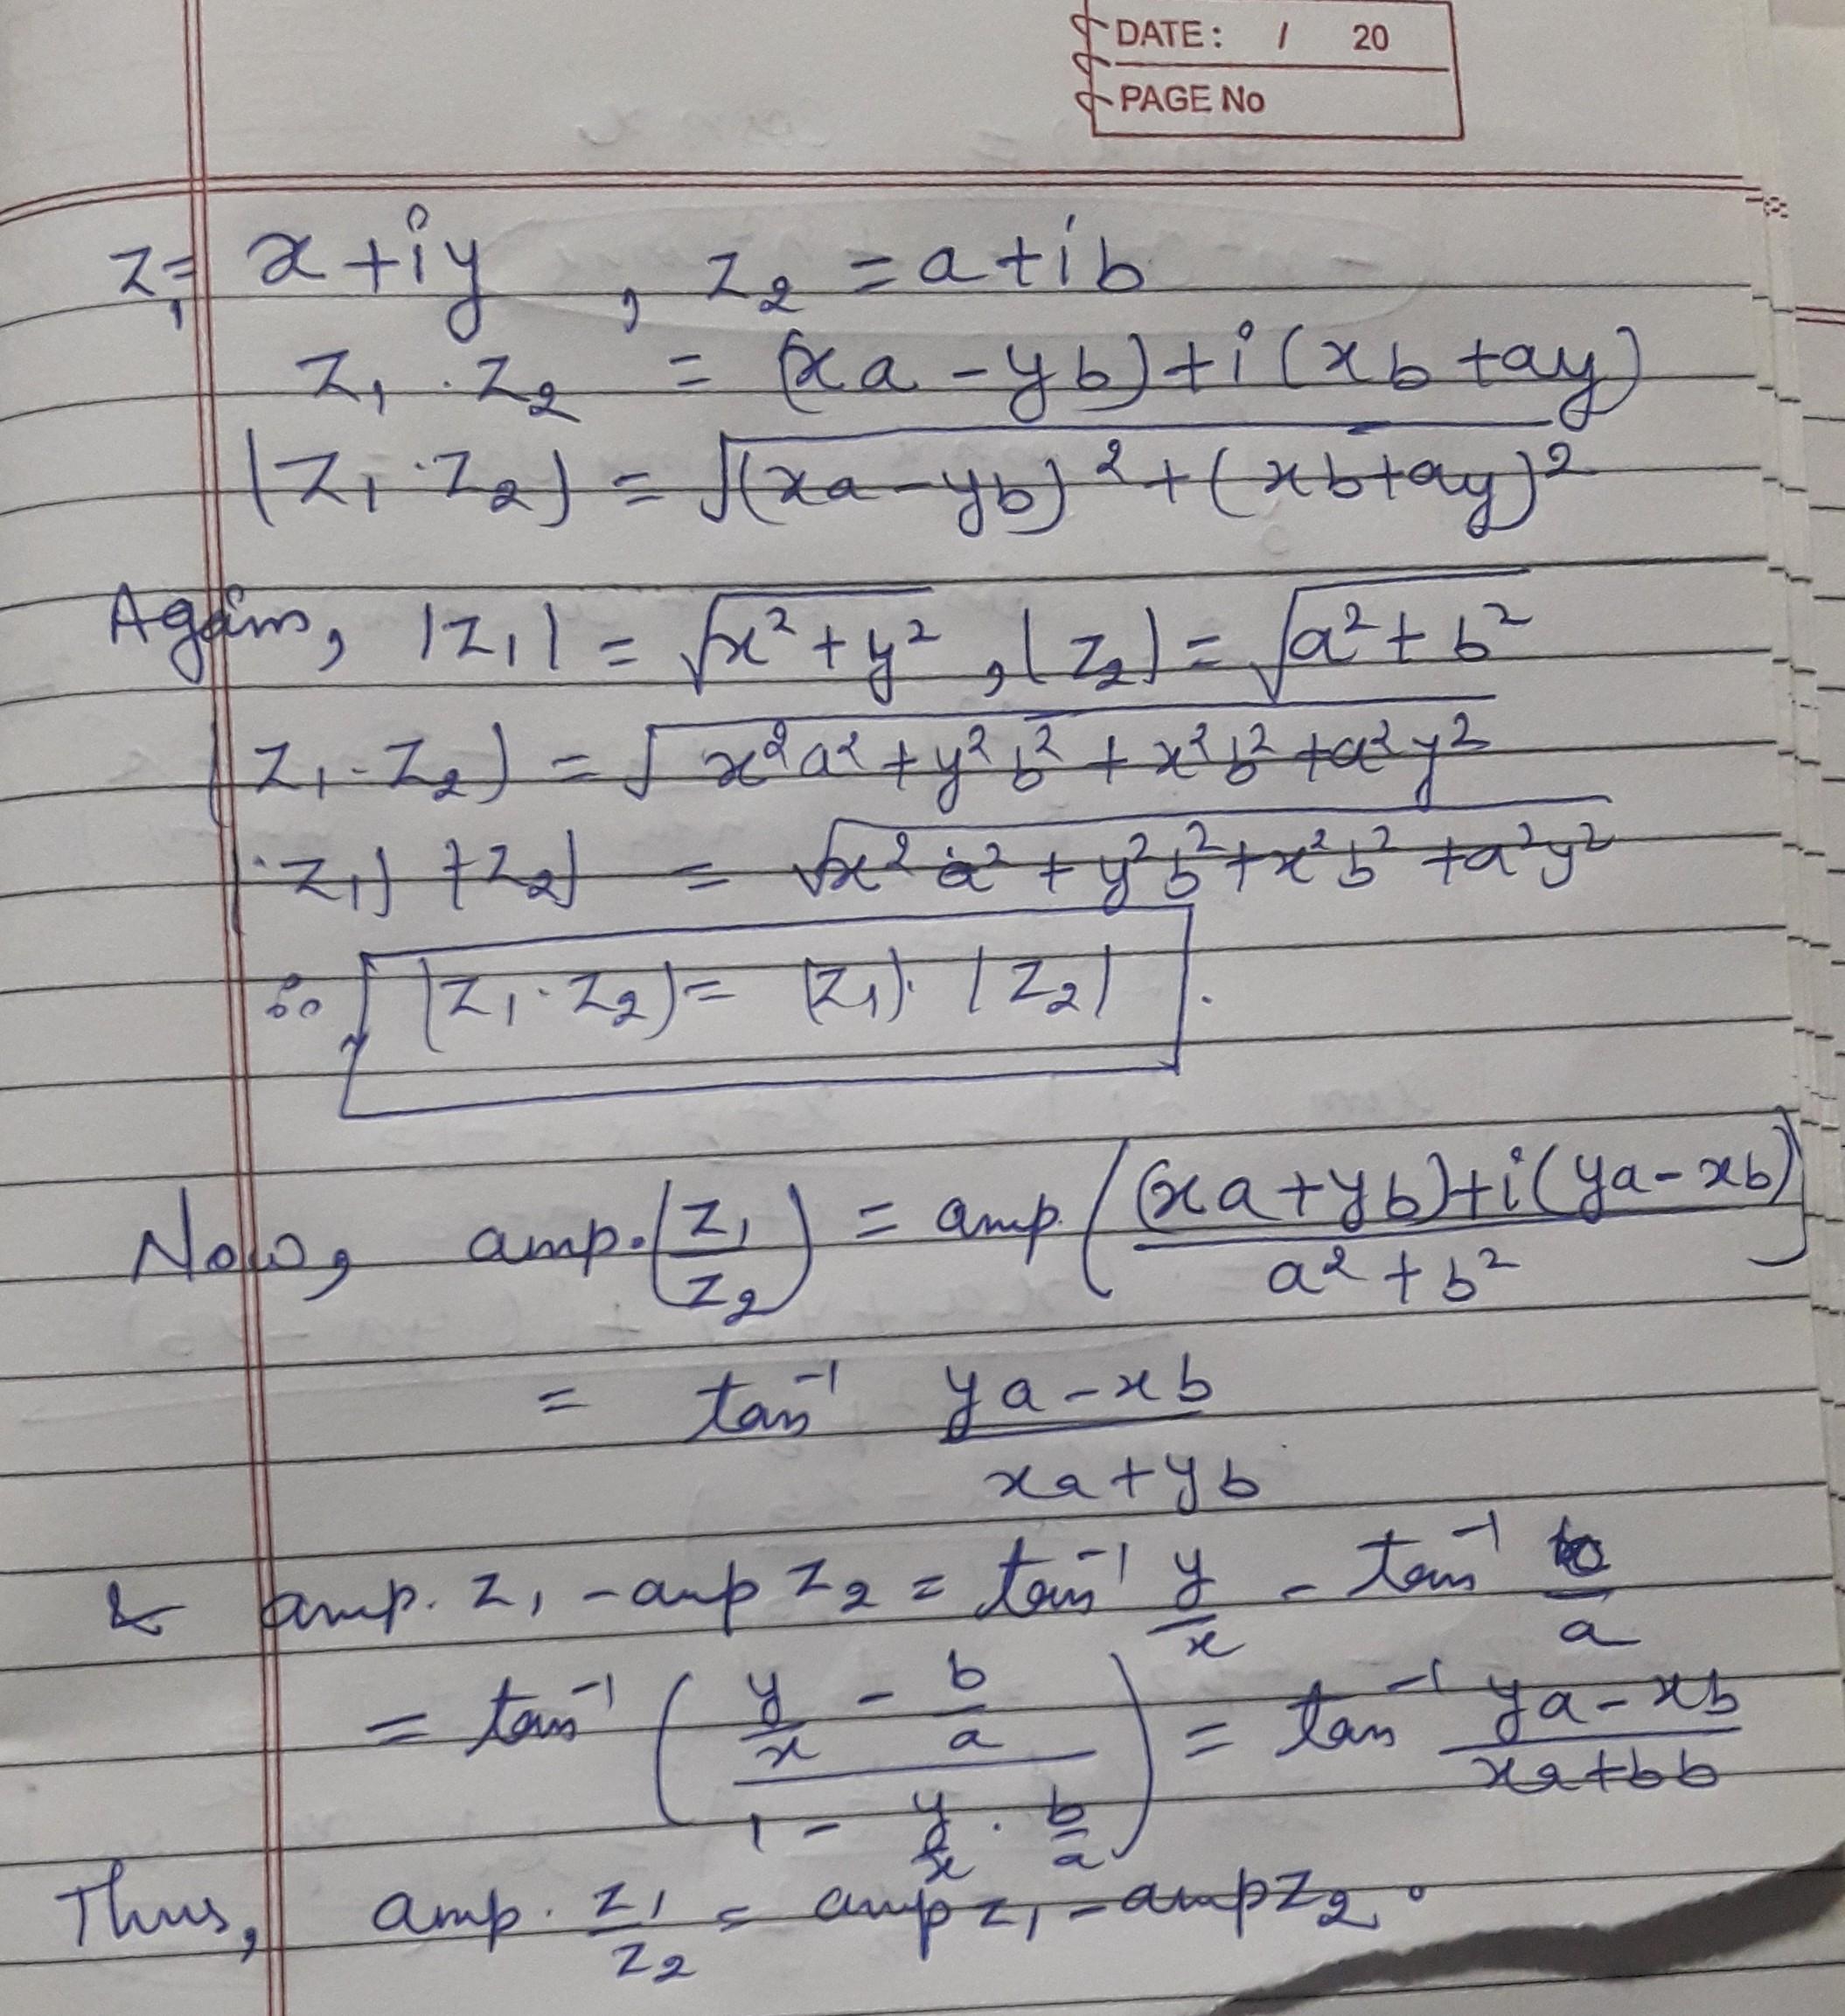 DATE: / 20
PAGE No
z₁= x+iy , z₂ = a+ib
z₁ . z₂ = (xa - yb)+i(xb+ay)
|z₁ . z₂| = √((xa-yb)²+(xb+ay)²)
Again, |z₁| = √(x²+y²) , |z₂| = √(a²+b²)
|z₁.z₂| = √(x²a²+y²b²+x²b²+a²y²)
|z₁| |z₂| = √(x²a²+y²b²+x²b²+a²y²)
∴ |z₁.z₂| = |z₁|.|z₂| .
Now, amp.(z₁/z₂) = amp.(((xa+yb)+i(ya-xb))/(a²+b²))
= tan⁻¹ (ya-xb)/(xa+yb)
& amp. z₁ - amp z₂ = tan⁻¹ y/x - tan⁻¹ b/a
= tan⁻¹ ((y/x - b/a)/(1 - y/x . b/a)) = tan⁻¹ (ya-xb)/(xa+bb)
Thus, amp. z₁/z₂ = amp z₁ - amp z₂.